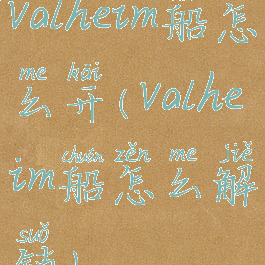 Valheim船怎
me kāi
么开(Valhe
chuán zěn me jiě
im船怎么解
suǒ
锁)